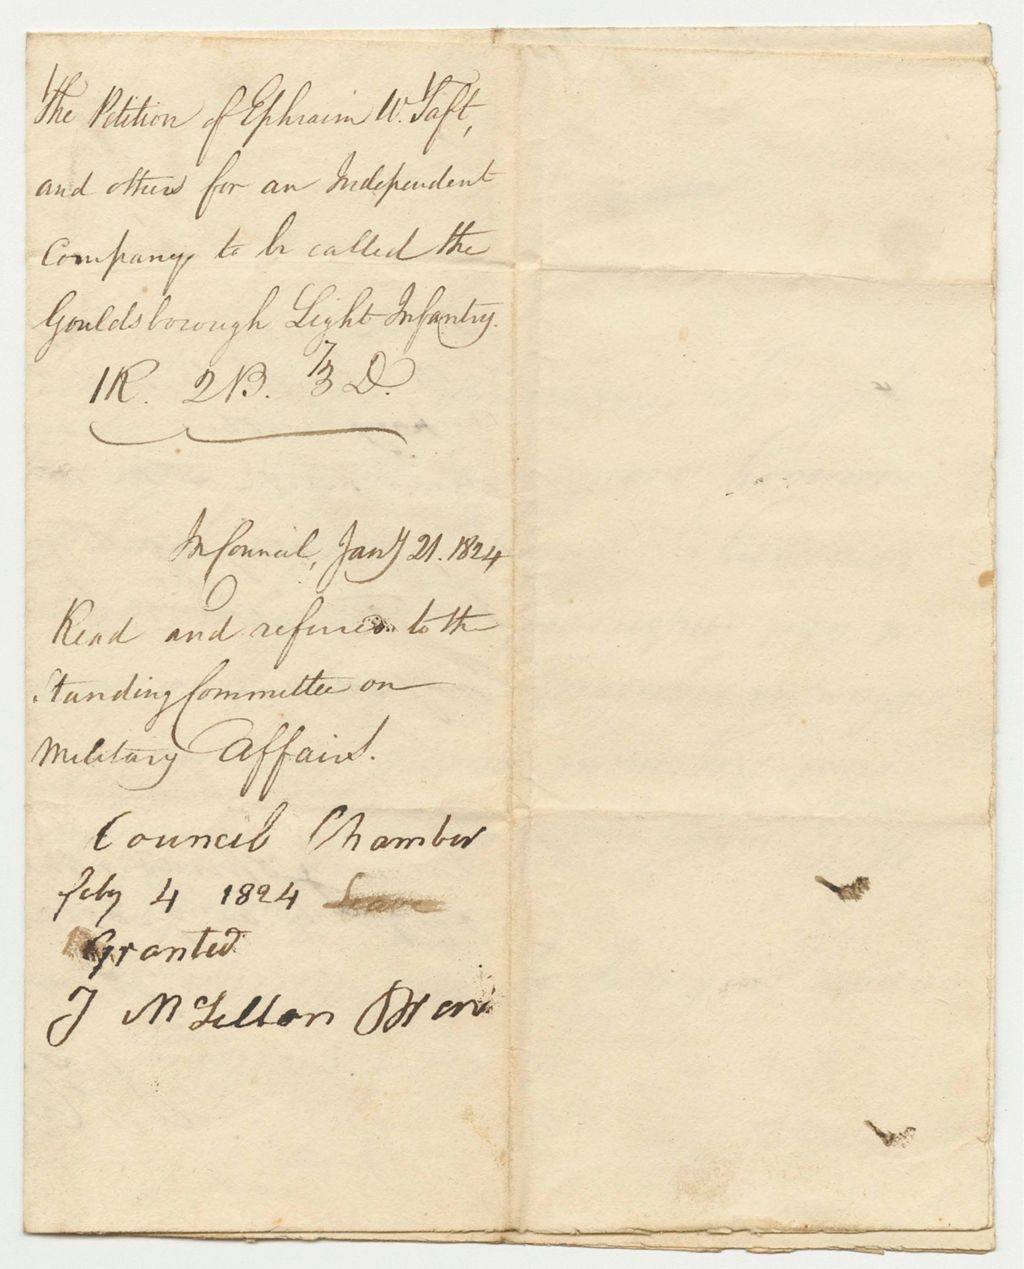 The Petition of Ephraim W. Taft,
and others for an Independent
Company, to be called the
Gouldsborough Light Infantry.
1R. 2B. 3D.
7
In Council, Jany 21. 1824
Read and referred to the
Standing Committee on
Military Affairs.
Council Chamber
Feby 4 1824 Leave
Granted
J